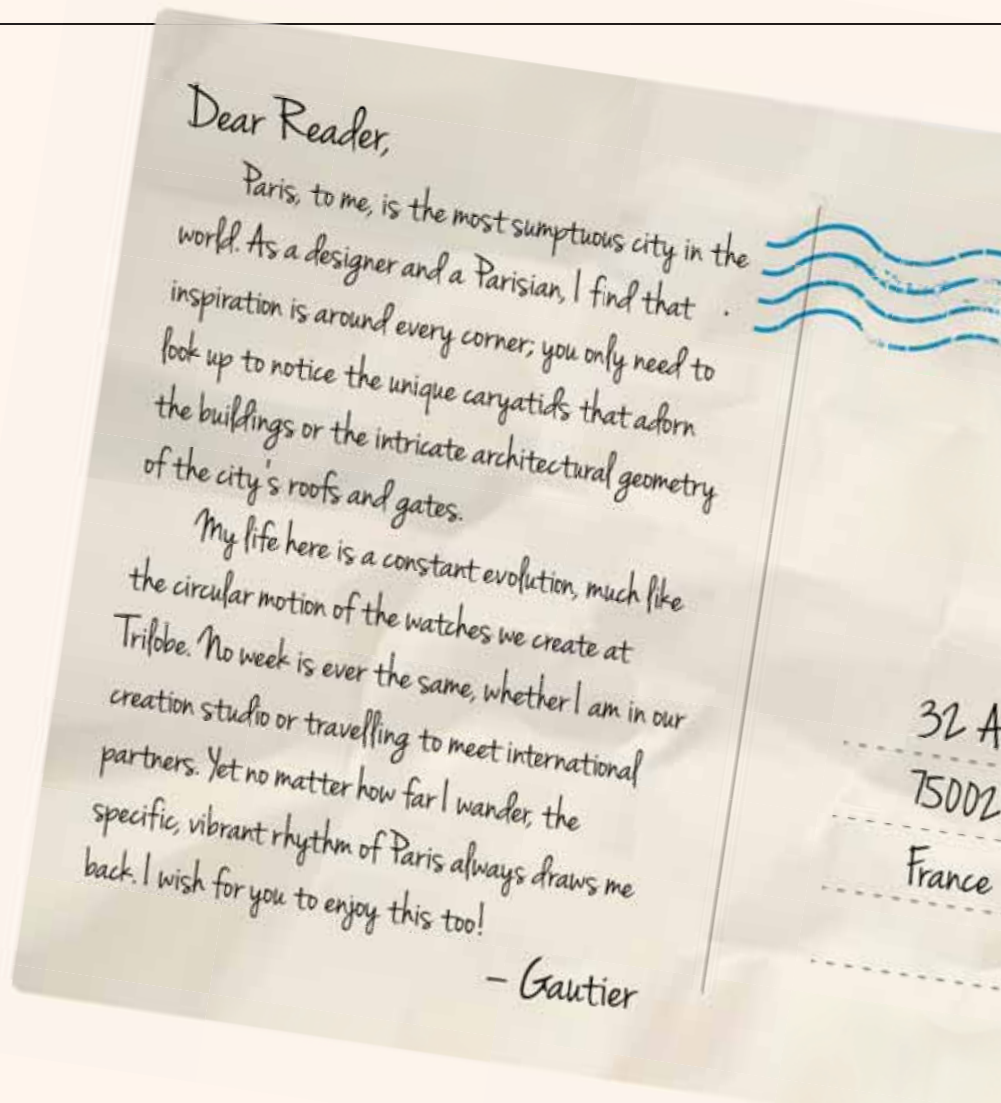 Dear Reader,
Paris, to me, is the most sumptuous city in the
world. As a designer and a Parisian, I find that
inspiration is around every corner; you only need to
look up to notice the unique caryatids that adorn
the buildings or the intricate architectural geometry
of the city's roofs and gates.
My life here is a constant evolution, much like
the circular motion of the watches we create at
Trilobe. No week is ever the same, whether I am in our
creation studio or travelling to meet international
partners. Yet no matter how far I wander, the
specific, vibrant rhythm of Paris always draws me
back. I wish for you to enjoy this too!
– Gautier
32 A
75002
France